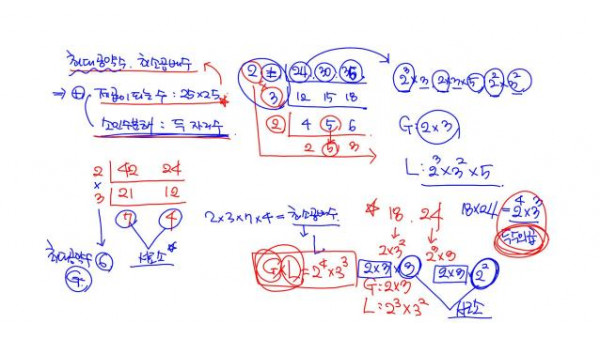 최대공약수. 최소공배수
⇒ ① 제곱이 되는 수 : 25×25
소인수분해 : 두 자리수
2 24 30 36
3 12 15 18
2 4 5 6
2 5 3
2³×3 2×3×5 2²×3²
G: 2×3
L: 2³×3²×5
2 42 24
×
3 21 12
7 4
최대공약수 6
G
서로소
2×3×7×4 = 최소공배수
G×L = 2⁴×3³
18. 24
2×3² 2³×3
2×3 × 3 2×3 × 2²
G: 2×3
L: 2³×3²
서로소
18×24 = 2⁴×3³
두수의곱